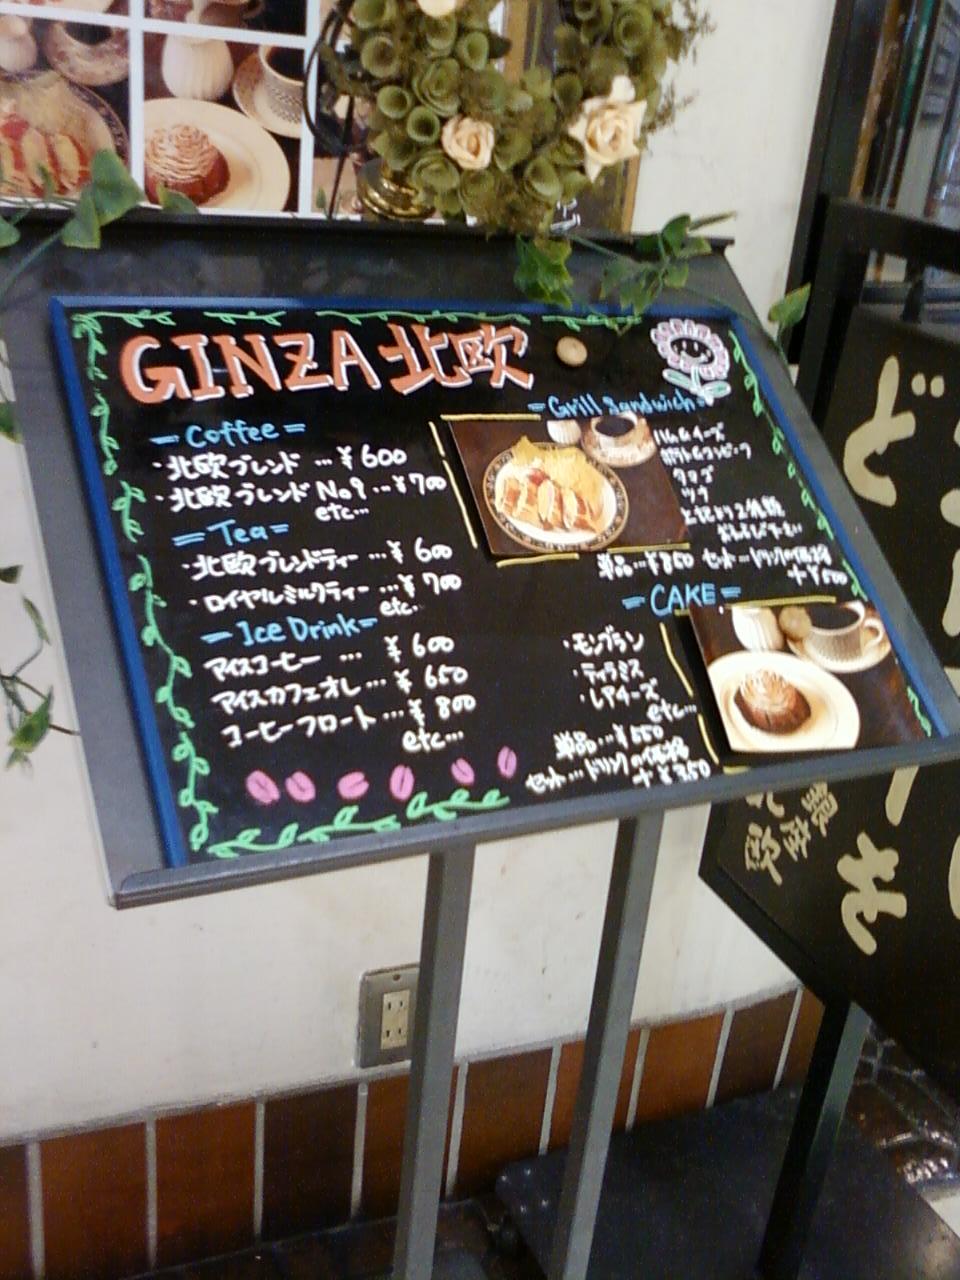 GINZA 北欧
=Coffee=
・北欧ブレンド …￥600
・北欧ブレンド No9…￥700
etc…
=Tea=
・北欧ブレンドティー …￥600
・ロイヤルミルクティー …￥700
etc…
=Ice Drink=
アイスコーヒー …￥600
アイスカフェオレ…￥650
コーヒーフロート…￥800
etc…
=Grill Sandwich=
ハム&チーズ
タマゴ
ツナ
上記より2種類
おえらび下さい
単品…￥850 セット…ドリンクの価格
+￥500
=CAKE=
・モンブラン
・ティラミス
・レアチーズ
etc…
単品…￥550
セット…ドリンクの価格
+￥350
ど
れ
銀座